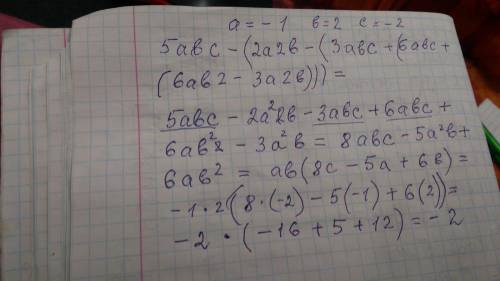 a = - 1 в = 2 с = - 2
5авс - (2а2в - (3авс + (6авс +
(6ав2 - 3а2в))) =
5авс - 2а²2в - 3авс + 6авс +
6ав²2 - 3а²в = 8авс - 5а²в +
6ав² = ав(8с - 5а + 6в) =
-1 · 2 (8 · (-2) - 5(-1) + 6(2)) =
-2 · (-16 + 5 + 12) = - 2